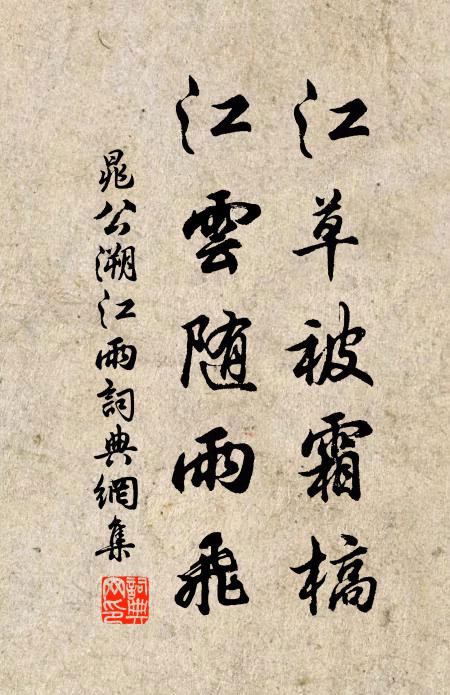 江草被霜槁
江雲随雨飛
晁公溯江雨詞典網集
詞典网印